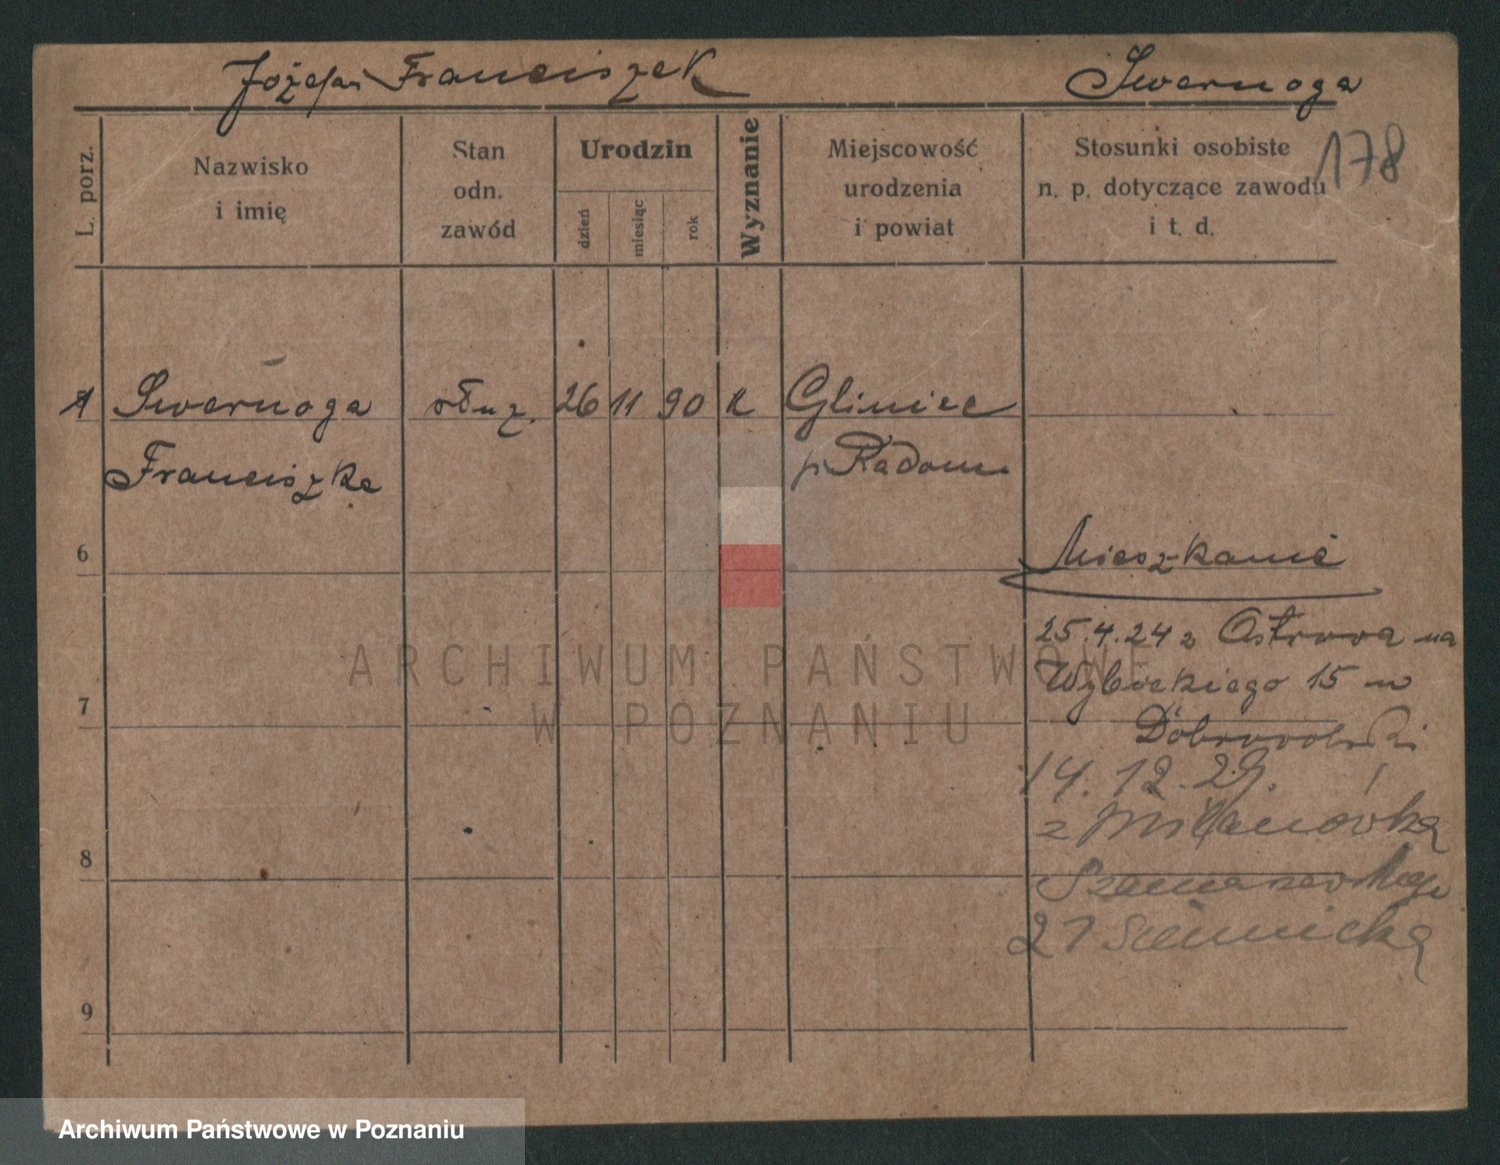 Józefa Franciszek Swernoga
178
L. porz.
Nazwisko
i imię
Stan
odn.
zawód
Urodzin
dzień
miesiąc
rok
Wyznanie
Miejscowość
urodzenia
i powiat
Stosunki osobiste
n. p. dotyczące zawodu
i t. d.
1 Swernoga służ. 26 11 90 k Gliniec
Franciszka p Radom
6
Mieszkanie
25.4.24 z Ostrowa na
Wybickiego 15 w
7
14.12.29.
z Milanówka
8
27
9
ARCHIWUM PAŃSTWOWE
W POZNANIU
Archiwum Państwowe w Poznaniu